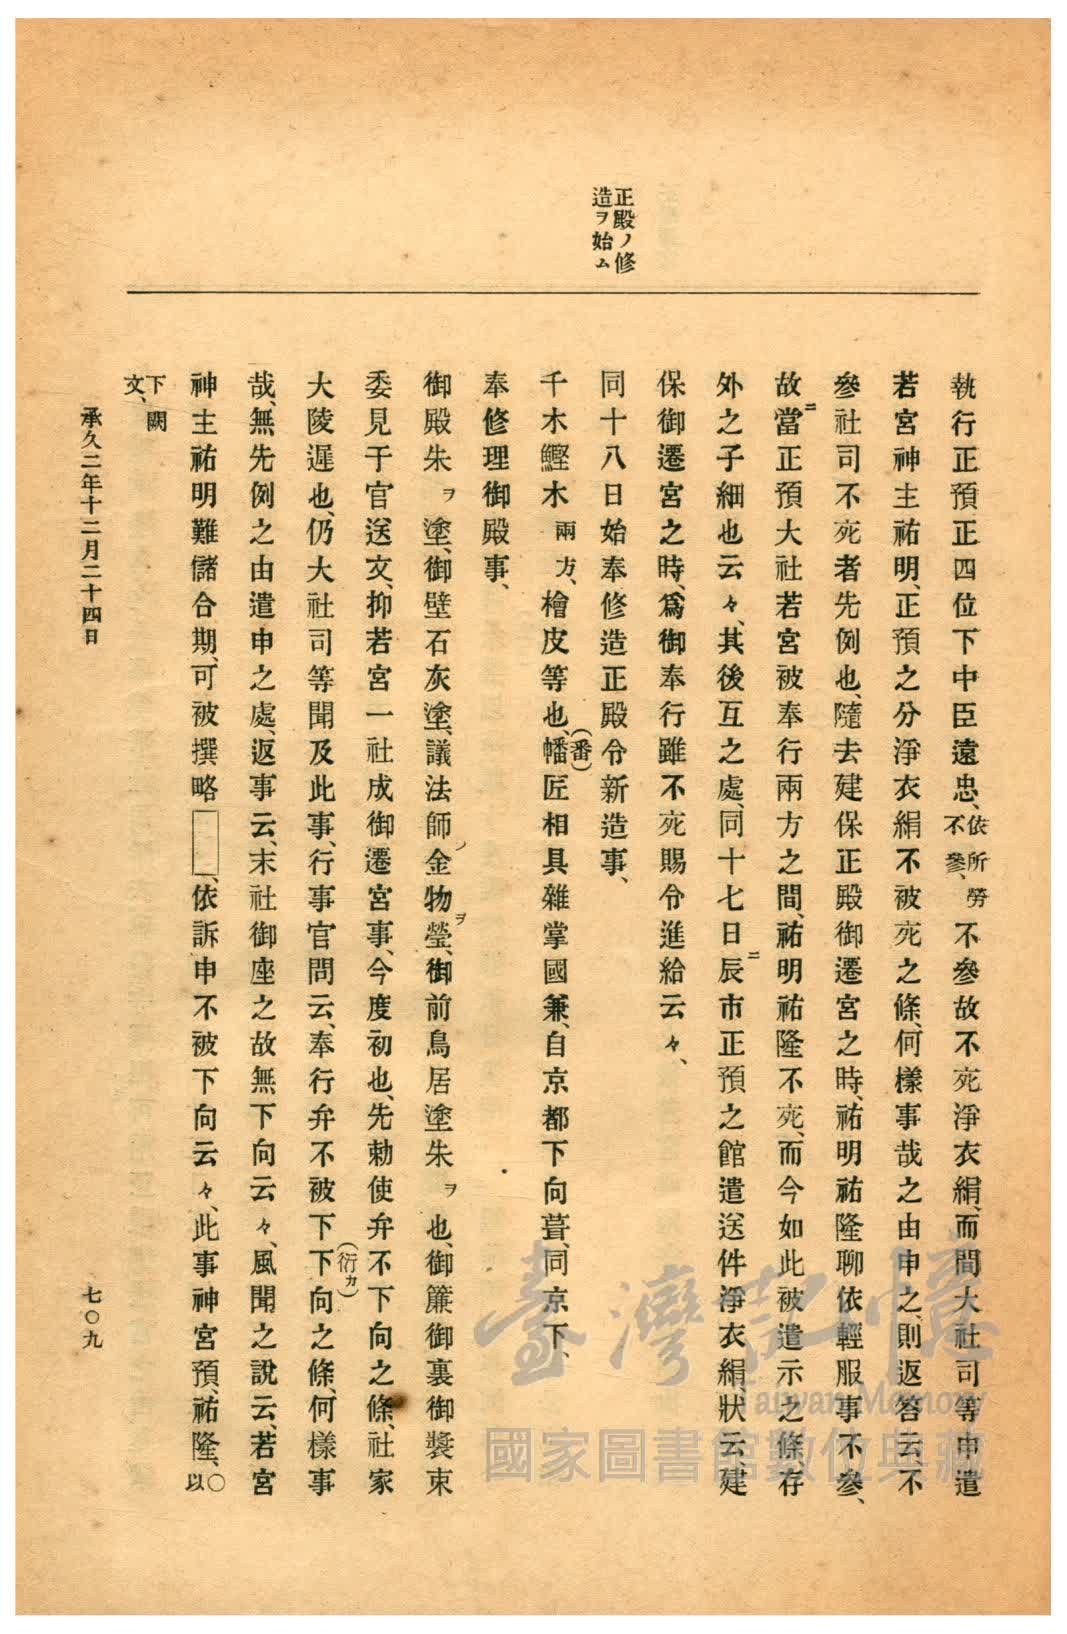 正殿ノ修
造ヲ始ム
執行正預正四位下中臣遠忠、依所勞不參、不參故不死淨衣絹、而間大社司等申遣
若宮神主祐明、正預之分淨衣絹不被死之條、何樣事哉之由申之、則返答云、不
參社司不死者先例也、隨去建保正殿御遷宮之時、祐明祐隆聊依輕服事不參、
故當ニ正預大社若宮被奉行兩方之間、祐明祐隆不死、而今如此被遣示之條、存
外之子細也云々、其後互之處、同十七日辰ニ市正預之館遣送件淨衣絹狀云、建
保御遷宮之時、爲御奉行雖不死賜令進給云々、
同十八日始奉修造正殿令新造事、
千木鰹木兩方、檜皮等也、幡(番)匠相具雜掌國兼、自京都下向葺、同京下、
奉修理御殿事、
御殿朱ヲ塗、御壁石灰塗、議法師ノ金物ヲ瑩、御前鳥居塗朱ヲ也、御簾御裏御裝束
委見于官送文、抑若宮一社成御遷宮事、今度初也、先勅使弁不下向之條、社家
大陵遲也、仍大社司等聞及此事、行事官問云、奉行弁不被下下(衍カ)向之條、何樣事
哉、無先例之由遣申之處、返事云、末社御座之故無下向云々、風聞之說云、若宮
神主祐明難儲合期、可被撰略、依訴申不被下向云々、此事神宮預、祐隆、○以
下闕
文、
承久二年十二月二十四日
七〇九
臺灣記憶
Taiwan Memory
國家圖書館數位典藏